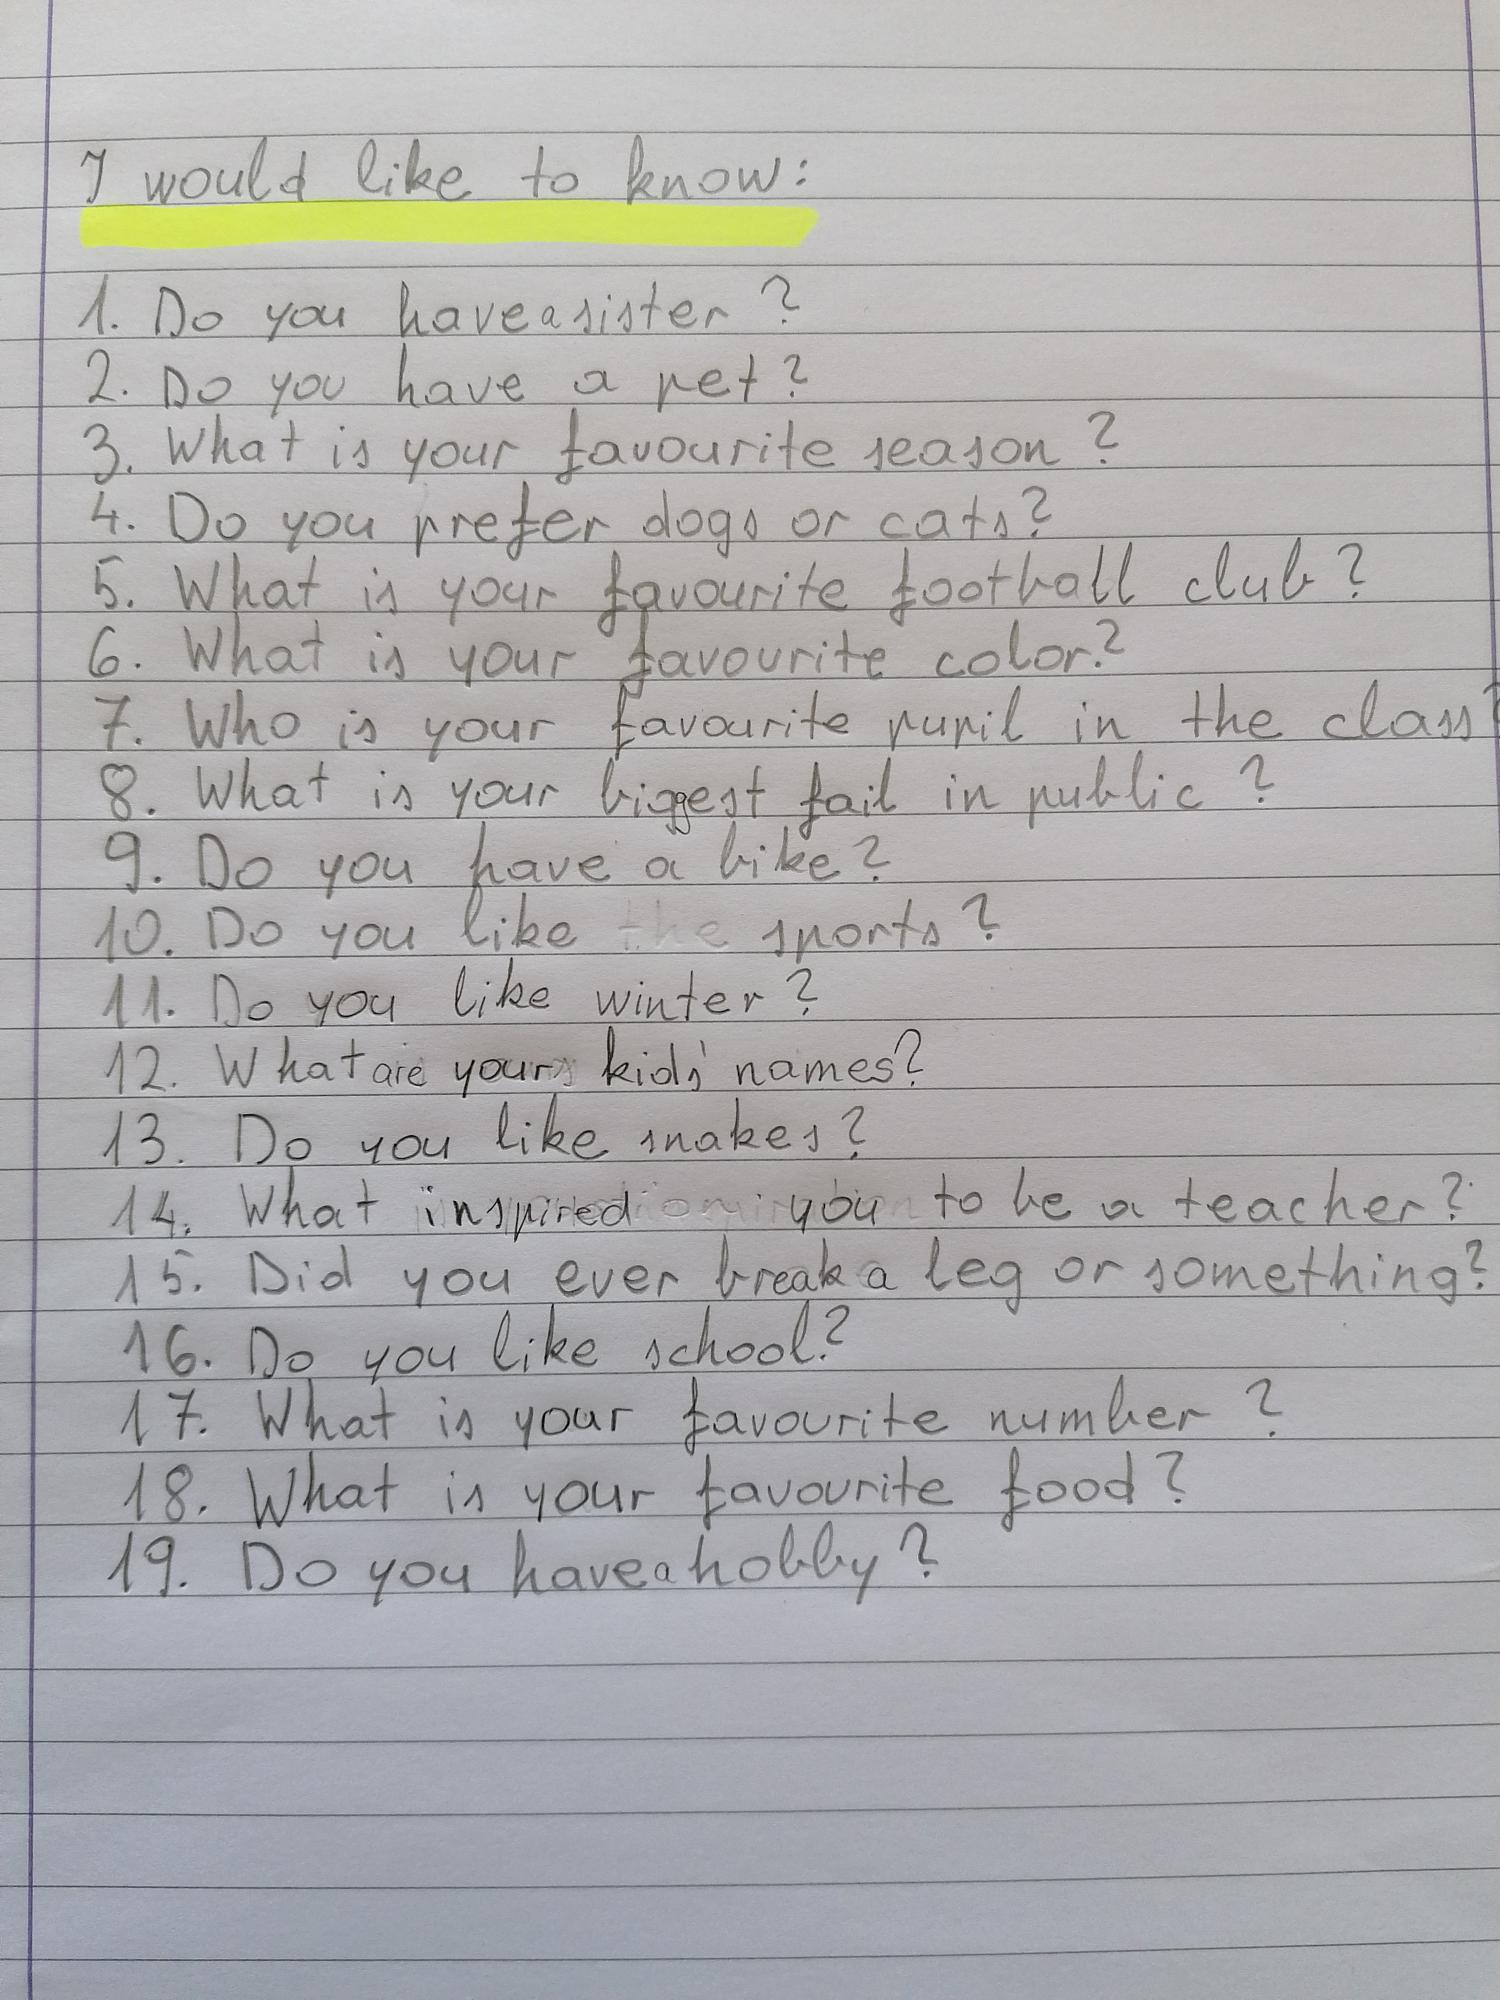 I would like to know:
1. Do you have a sister?
2. Do you have a pet?
3. What is your favourite season?
4. Do you prefer dogs or cats?
5. What is your favourite football club?
6. What is your favourite color?
7. Who is your favourite pupil in the class?
8. What is your biggest fail in public?
9. Do you have a bike?
10. Do you like sports?
11. Do you like winter?
12. What are your kids' names?
13. Do you like snakes?
14. What inspired you to be a teacher?
15. Did you ever break a leg or something?
16. Do you like school?
17. What is your favourite number?
18. What is your favourite food?
19. Do you have a hobby?